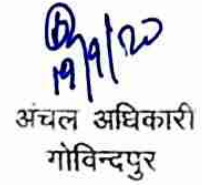 19/9/20
अंचल अधिकारी
गोविन्दपुर